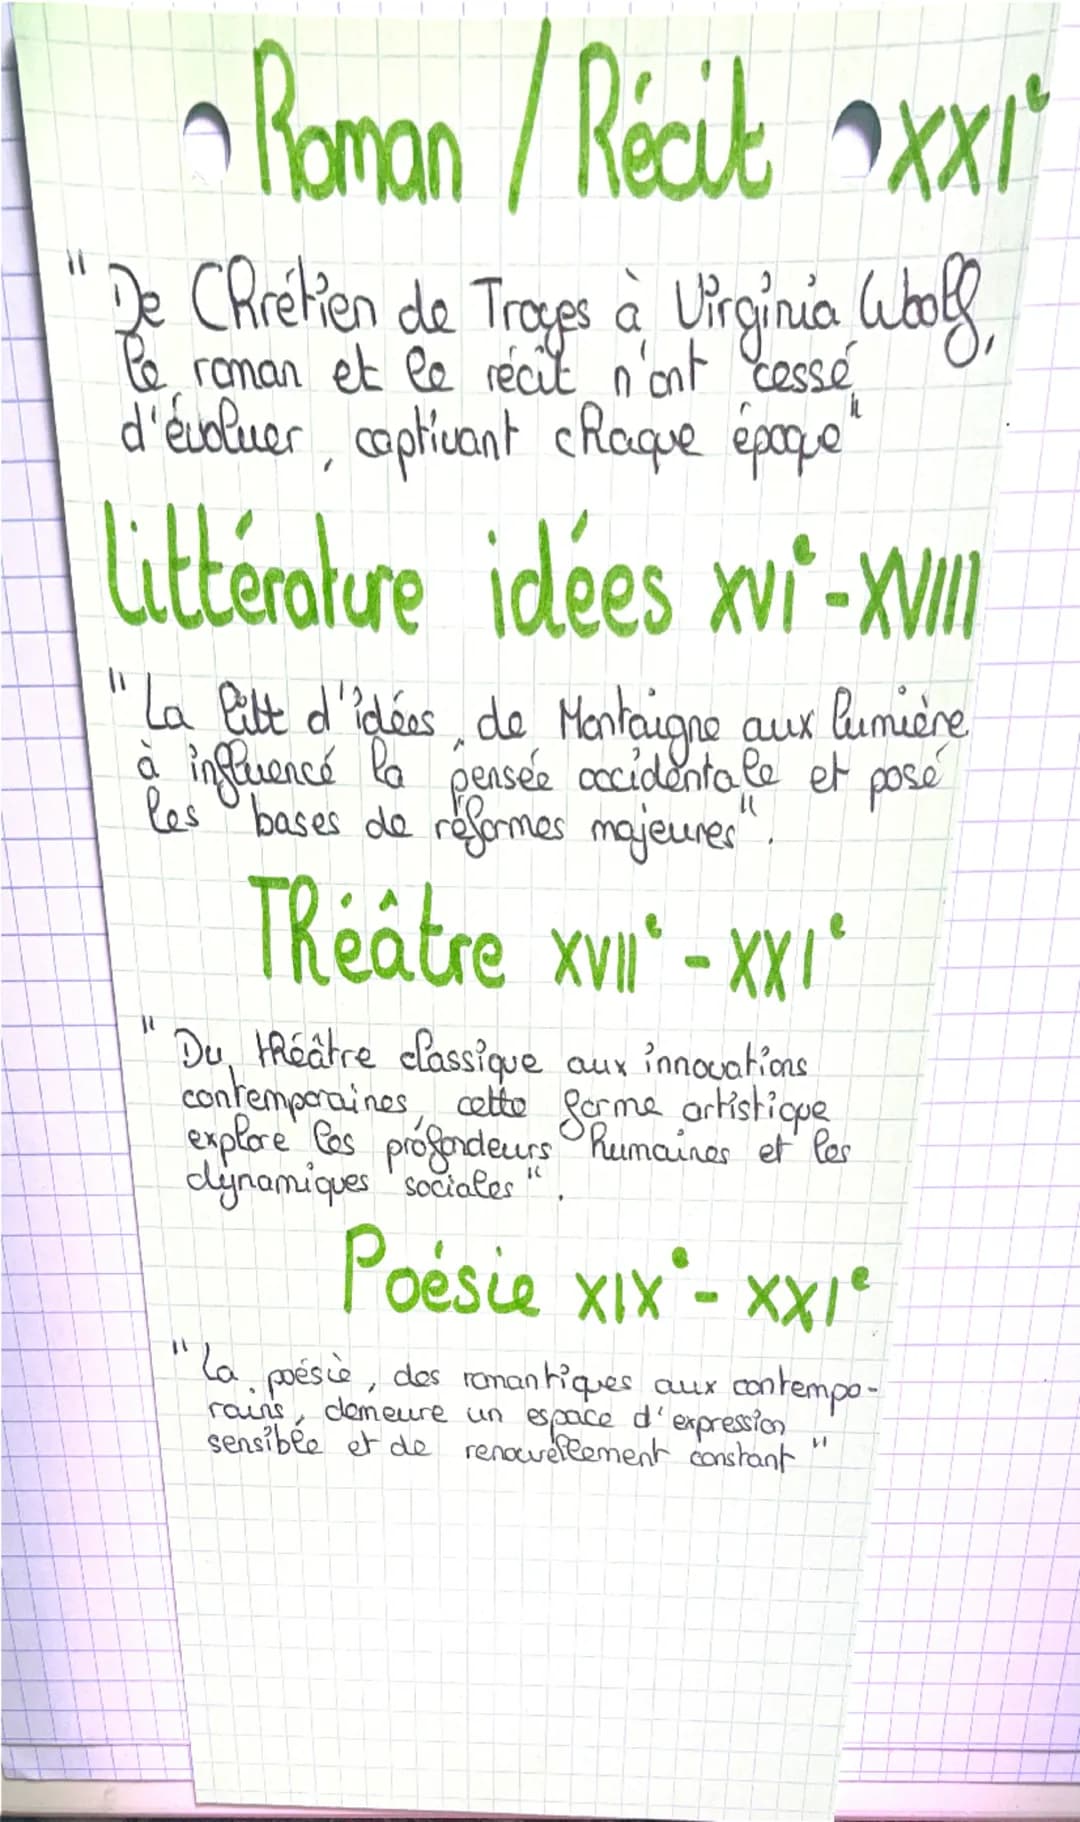 Roman / Récit XXIe
"De Chrétien de Troyes à Virginia Woolf,
le roman et le récit n'ont cessé
d'évoluer, captivant chaque époque"
Littérature idées XVIe-XVIII
"La litt d'idées, de Montaigne aux lumière
à influencé la pensée occidentale et posé
les bases de réformes majeures".
Théâtre XVIIe - XXIe
"Du théâtre classique aux innovations
contemporaines, cette forme artistique
explore les profondeurs humaines et les
dynamiques sociales".
Poésie XIXe - XXIe
"La poésie, des romantiques aux contempo-
rains, demeure un espace d'expression
sensible et de renouvellement constant"